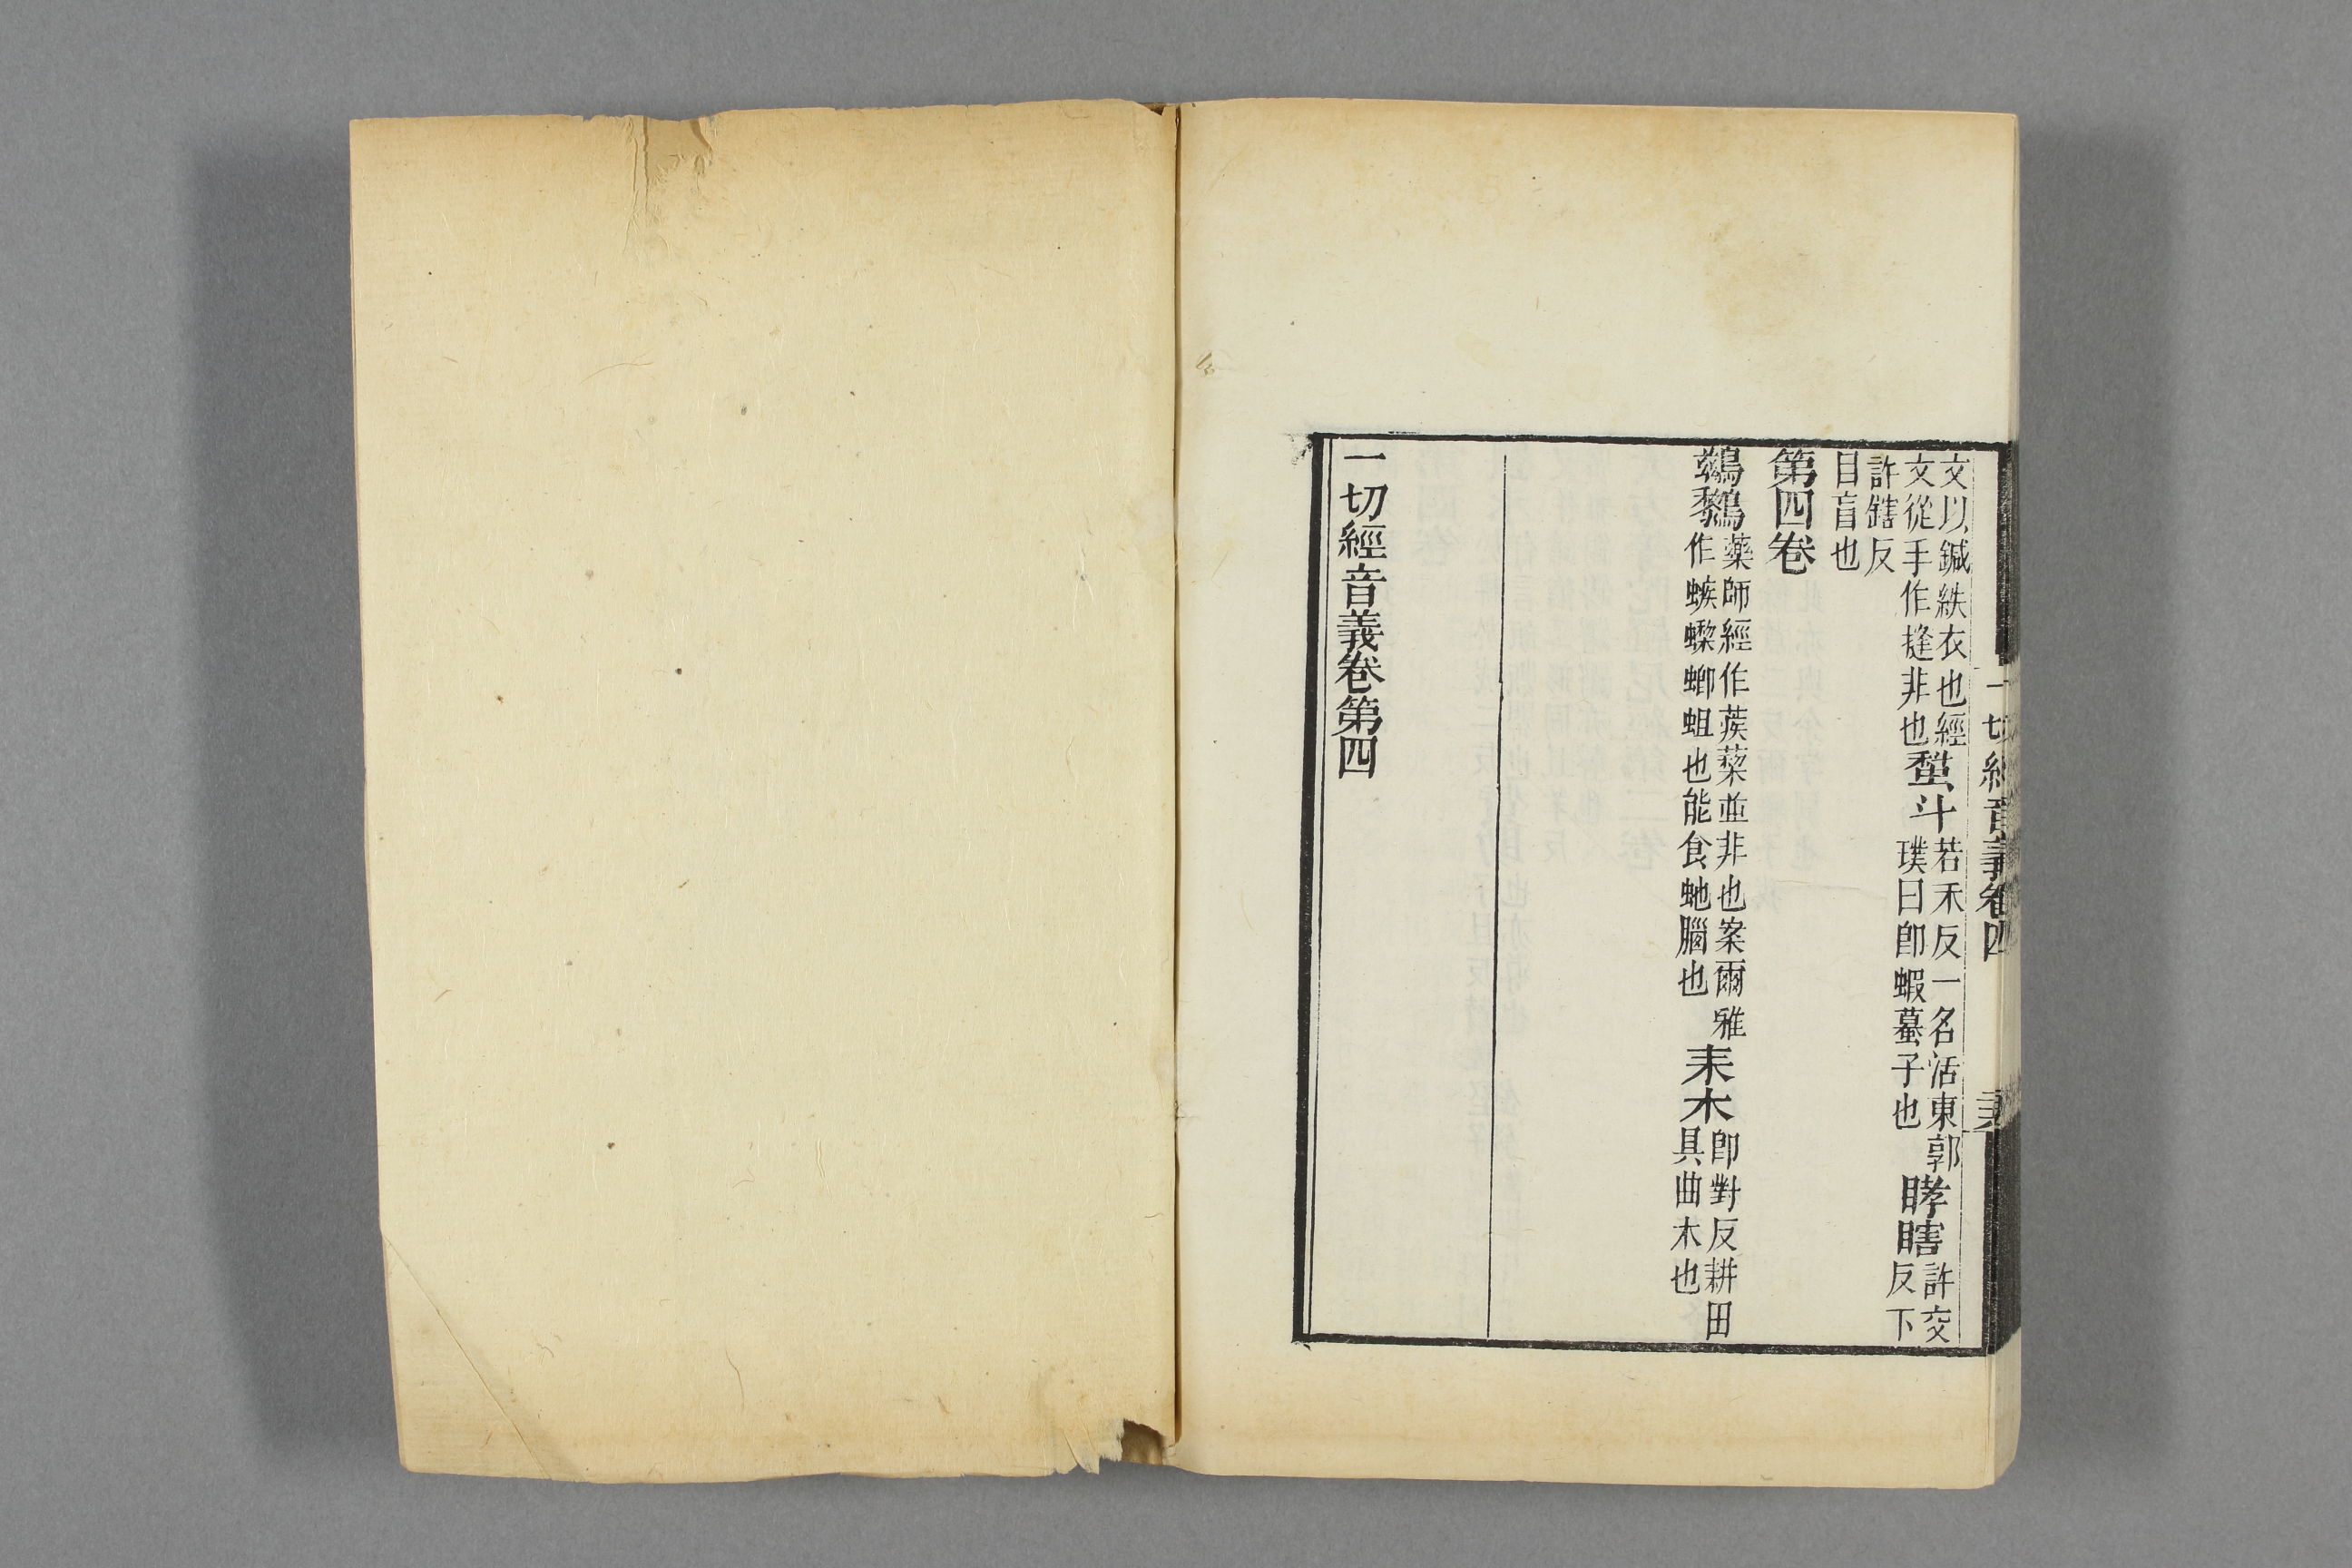 一切經音義卷四
文以鍼紩衣也經
文從手作摓非也
斗
若禾反一名活東郭
璞曰即蝦蟇子也
瞎
許交
反下
許鎋反
目盲也
第四卷
藥師經作蒺蔾並非也案爾雅
作螏蟍蝍蛆也能食虵腦也
耒木
即對反耕田
具曲木也
一切經音義卷第四